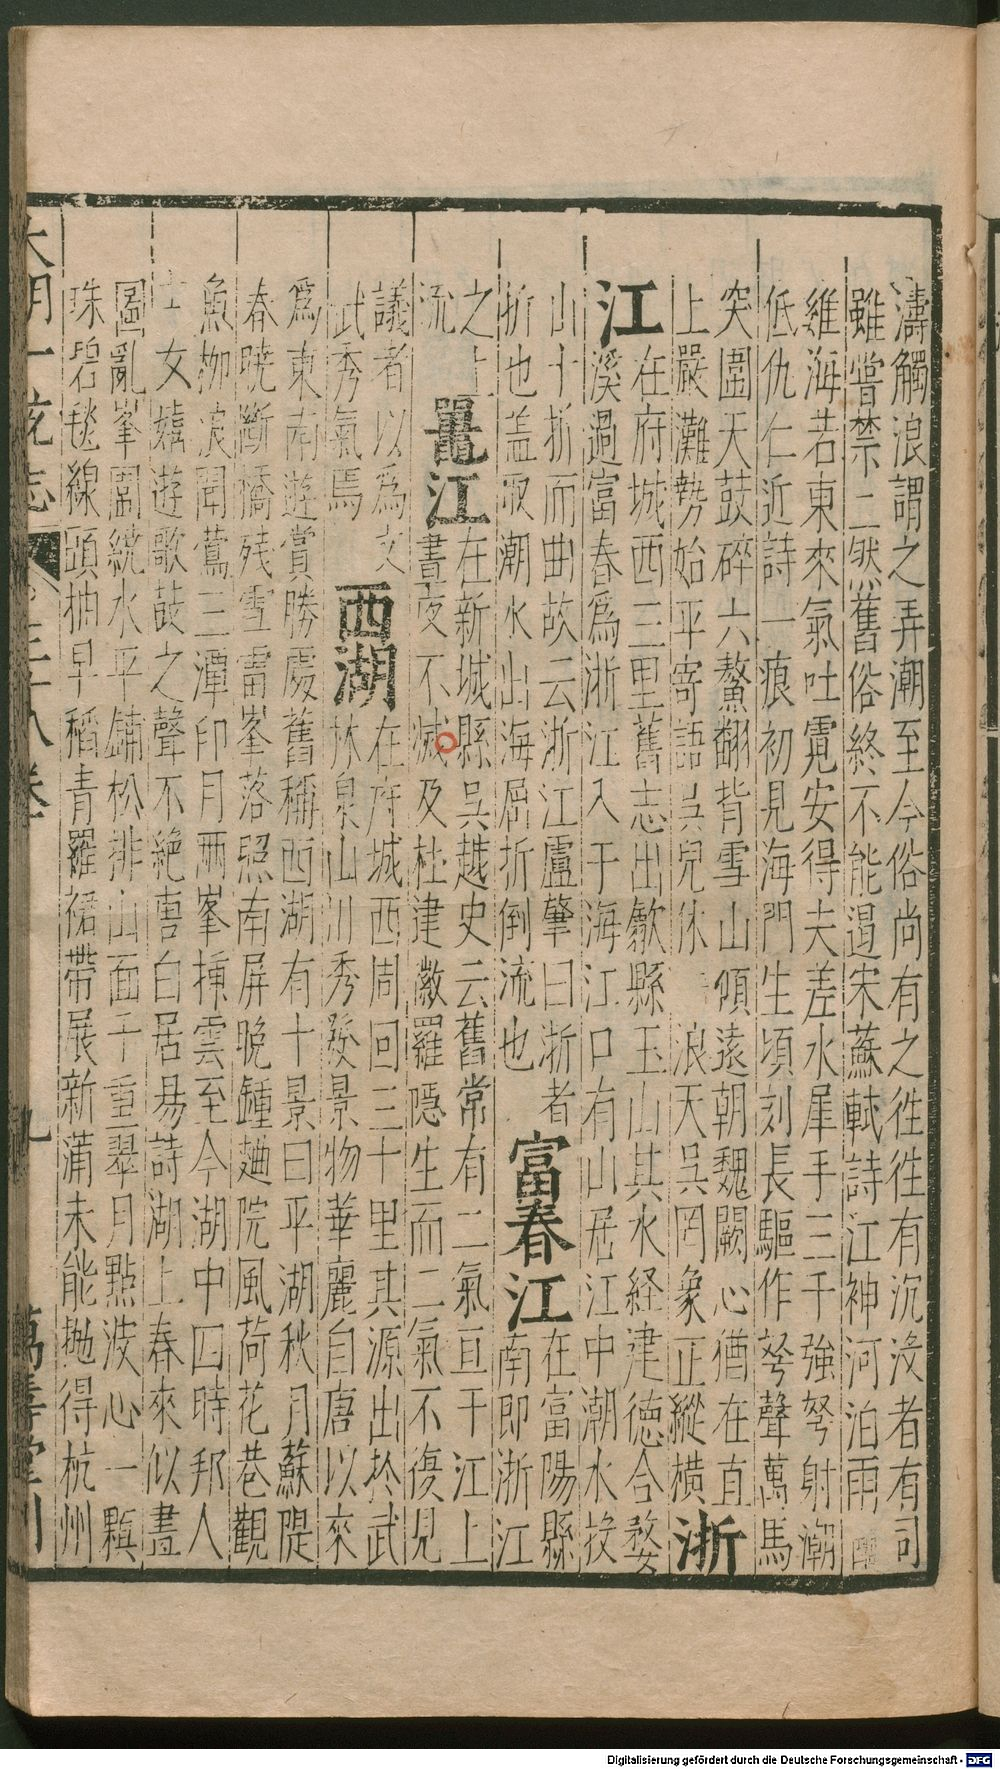 濤觸浪謂之弄潮至今俗尚有之徃徃有沉沒者有司
雖嘗禁止然舊俗終不能遏宋蘇軾詩江神河泊兩醯
雞海若東來氣吐霓安得夫差水犀手三千強弩射潮
低仇仁近詩一痕初見海門生頃刻長驅作弩聲萬馬
突圍天鼓碎六鰲翻背雪山傾遠朝魏闕心猶在直
上嚴灘勢始平寄語吳兒休 浪天吳罔象正縱橫 浙
江
在府城西三里舊志出歙縣玉山其水経建德合婺
溪過富春爲浙江入于海江口有山居江中潮水投
山十折而曲故云浙江盧肇曰浙者
折也盖取潮水出海屈折倒流也
富春江
在富陽縣
南即浙江
之上
流
鼍江
在新城縣吳越史云舊常有二氣亘于江上
晝夜不滅及杜建徽羅隠生而二氣不復見
議者以爲文
武秀氣焉
西湖
在府城西周回三十里其源出扵武
林泉山川秀發景物華麗自唐以來
爲東南遊賞勝處舊稱西湖有十景曰平湖秋月蘇隄
春曉斷橋残雪雷峯落照南屏晚鍾麯院風荷花巷觀
魚柳浪聞鶯三潭印月兩峯揷雲至今湖中四時邦人
士女嬉遊歌鼓之聲不絶唐白居昜詩湖上春來似畫
圖亂峯圍繞水平鋪松排山面千重翠月點波心一顆
珠碧毯線頭抽早稻青羅裙帶展新蒲未能抛得杭州
大明一統志 三十八卷 九 萬壽堂刊
Digitalisierung gefördert durch die Deutsche Forschungsgemeinschaft - DFG